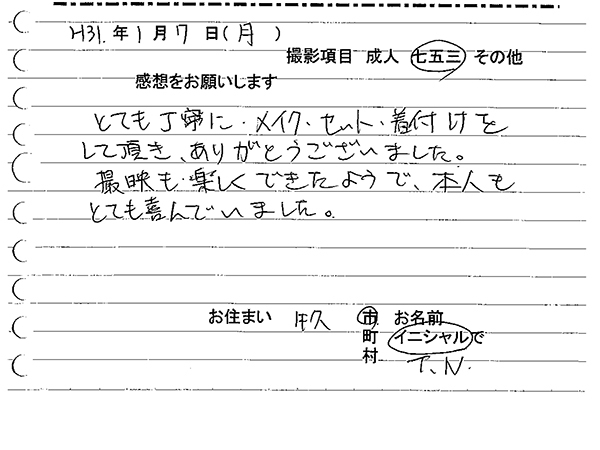 H31.年1月7日(月)
撮影項目 成人 七五三 その他
感想をお願いします
とても丁寧に・メイク・セット・着付けを
して頂き、ありがとうございました。
撮映も楽しくできたようで、本人も
とても喜んでいました。
お住まい 久 市 お名前
町 イニシャルで
村 T.N.